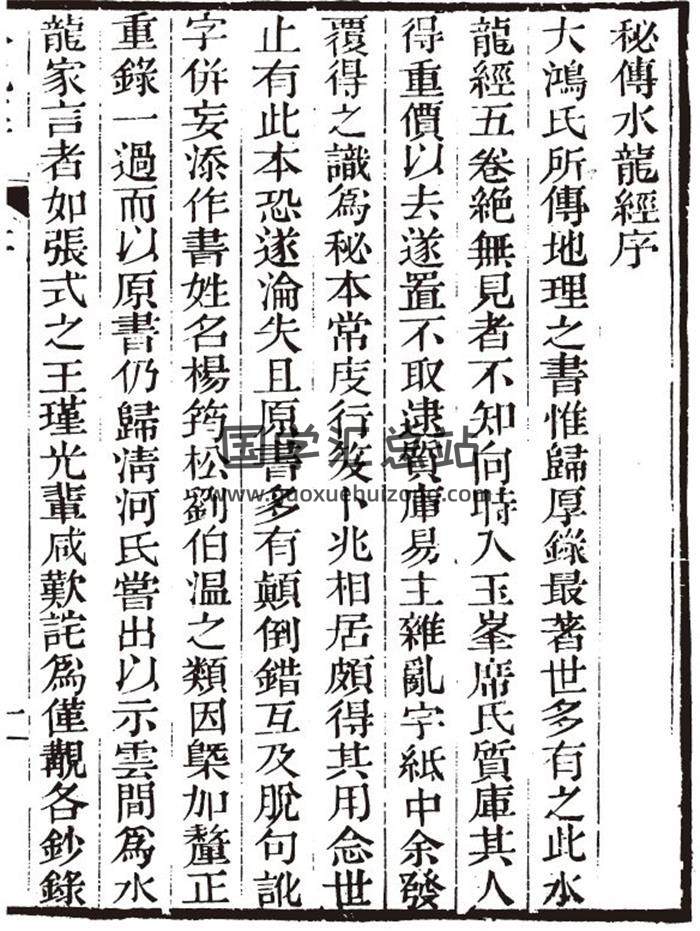 秘傳水龍經序
大鴻氏所傳地理之書惟歸厚錄最著世多有之此水
龍經五卷絶無見者不知何時入玉峯席氏質庫其人
得重價以去遂置不取逮質庫易主雜亂字紙中余發
覆得之識爲秘本常庋行笈卜兆相居頗得其用念世
止有此本恐遂淪失且原書多有顛倒錯互及脫句訛
字併妄添作書姓名楊筠松劉伯温之類因槩加釐正
重錄一過而以原書仍歸清河氏嘗出以示雲間爲水
龍家言者如張式之王瑾光輩咸歎詫爲僅覯各鈔錄
国学汇总站
www.guoxuehuizong.com